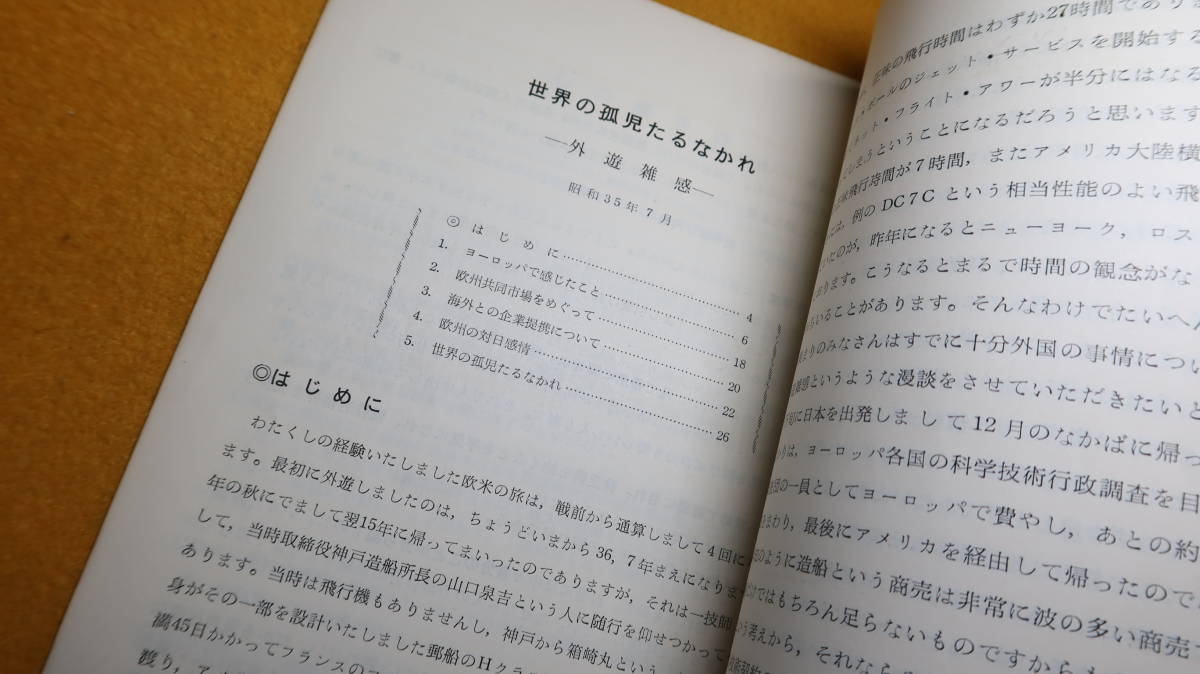 世界の孤児たるなかれ
―外遊雑感―
昭和35年7月
◎ はじめに
1. ヨーロッパで感じたこと 4
2. 欧州共同市場をめぐって 6
3. 海外との企業提携について 18
4. 欧州の対日感情 20
5. 世界の孤児たるなかれ 22
26
◎はじめに
わたくしの経験いたしました欧米の旅は，戦前から通算しまして4回に
ます。最初に外遊しましたのは，ちょうどいまから36，7年まえになりま
年の秋にでまして翌15年に帰ってまいったのでありますが，それは一技師
して，当時取締役神戸造船所長の山口泉吉という人に随行を仰せつかって
あります。当時は飛行機もありませんし，神戸から箱崎丸という
身がその一部を設計いたしました郵船のHクラ
満45日かかってフランスの
渡り，
の飛行時間はわずか27時間であり
ールのジェット・サービスを開始する
ネット・フライト・アワーが半分にはなる
ということになるだろうと思います
味飛行時間が7時間，またアメリカ大陸横
は，例のDC7Cという相当性能のよい飛
いたのが，昨年になるとニューヨーク，ロス
おります。こうなるとまるで時間の観念がな
いることがあります。そんなわけでたいへん
まりのみなさんはすでに十分外国の事情につい
雑感というような漫談をさせていただきたいと
旬に日本を出発しまして12月のなかばに帰っ
は，ヨーロッパ各国の科学技術行政調査を目
団の一員としてヨーロッパで費やし，あとの約
まわり，最後にアメリカを経由して帰ったので
のように造船という商売は非常に波の多い商売
だけではもちろん足らないものですから
という考えから，それなら